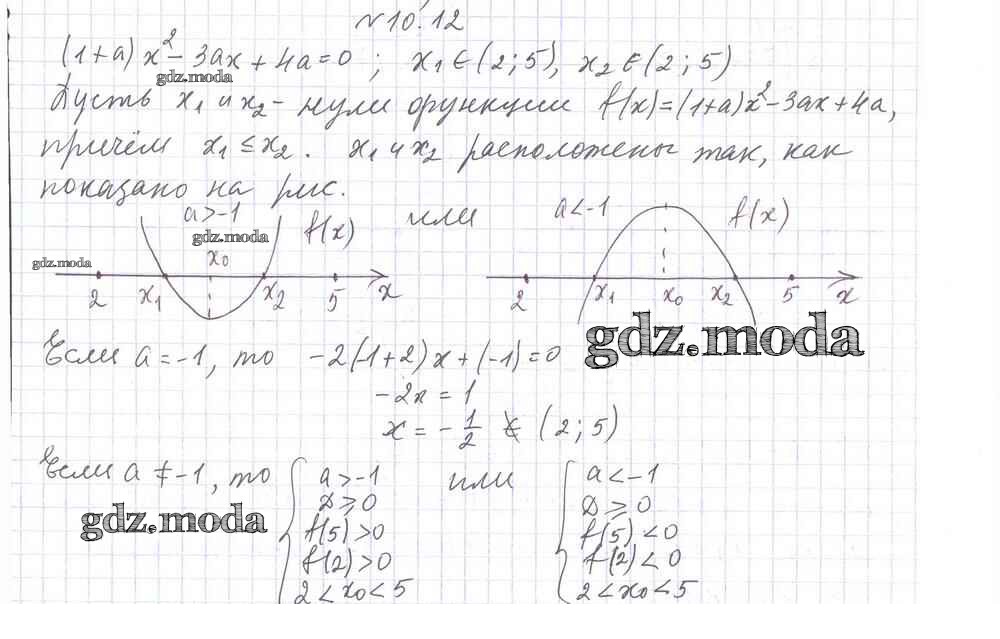 №10.12
(1+a)x² - 3ax + 4a = 0 ; x₁ ∈ (2;5), x₂ ∈ (2;5)
gdz.moda
Пусть x₁ и x₂ - нули функции f(x) = (1+a)x² - 3ax + 4a,
причём x₁ ≤ x₂. x₁ и x₂ расположены так, как
показано на рис.
a > -1 или a < -1 f(x)
gdz.moda f(x)
gdz.moda x₀
2 x₁ x₂ 5 x 2 x₁ x₀ x₂ 5 x
gdz.moda
Если a = -1, то -2(-1+2)x + (-1) = 0
-2x = 1
x = -1/2 ∉ (2;5)
Если a ≠ -1, то { a > -1 или { a < -1
gdz.moda
D ≥ 0 D ≥ 0
f(5) > 0 f(5) < 0
f(2) > 0 f(2) < 0
2 < x₀ < 5 2 < x₀ < 5